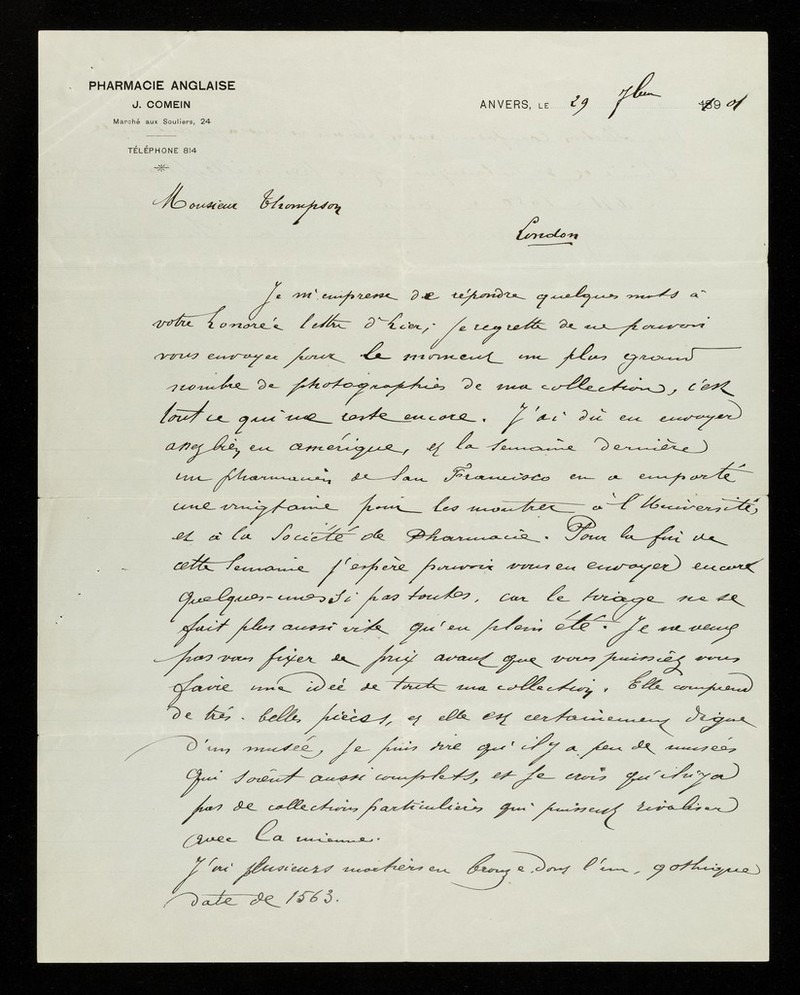 PHARMACIE ANGLAISE
J. COMEIN
Marché aux Souliers, 24
TÉLÉPHONE 814
ANVERS, LE 29 7bre 1901
Monsieur Thompson
London
Je m'empresse de répondre quelques mots à
votre honoreé lettre d'hier; je regrette de ne pouvoir
vous envoyer pour le moment un plus grand
nombre de photographies de ma collection, c'est
tout ce qui me reste encore. J'ai dû en envoyer
assez bien en amérique, et la semaine dernière
un pharmacien de San Francisco en a emporté
une vingtaine pour les montrer à l'Université,
et à la Société de Pharmacie. Pour la fin de
cette semaine j'espère pouvoir vous en envoyer encore
quelques-unes si pas toutes, car le tirage ne se
fait plus aussi vite qu'en plein été. Je ne veux
pas vous fixer de prix avant que vous puissiez vous
faire une ideé de toute ma collection. Elle comprend
de très-belles pièces, et elle est certainement digne
d'un musée, je puis dire qu'il y a peu de musées
qui soient aussi complets, et je crois qu'il n'y a
pas de collections particulières qui puissent rivaliser
avec la mienne.
J'ai plusieurs mortiers en bronze dont l'un, gothique
date de 1563.